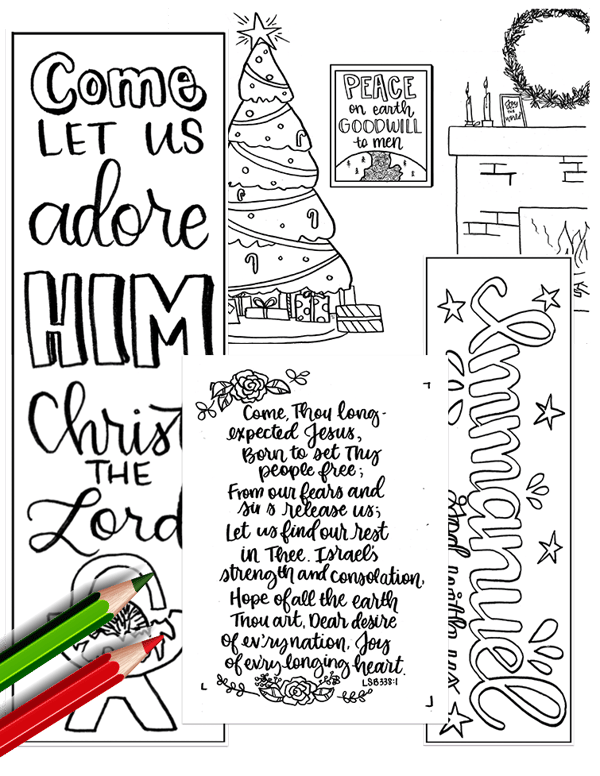 Come
LET US
adore
HIM
Christ
THE
Lord
PEACE
on earth
GOODWILL
to men
Joy
to the
world
Come, Thou long-
expected Jesus,
Born to set Thy
people free;
From our fears and
sins release us;
Let us find our rest
in Thee. Israel's
strength and consolation,
Hope of all the earth
Thou art, Dear desire
of ev'ry nation, Joy
of ev'ry longing heart.
LSB 338:1
Immanuel
God with us